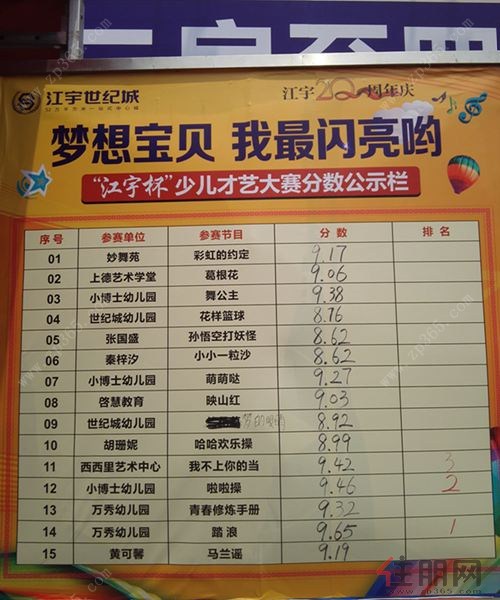 江宇世纪城
江宇20周年庆
梦想宝贝 我最闪亮哟
“江宇杯”少儿才艺大赛分数公示栏
序号 参赛单位 参赛节目 分数 排名
01 妙舞苑 彩虹的约定 9.17
02 上德艺术学堂 葛根花 9.06
03 小博士幼儿园 舞公主 9.38
04 世纪城幼儿园 花样篮球 8.76
05 张国盛 孙悟空打妖怪 8.62
06 秦梓汐 小小一粒沙 8.62
07 小博士幼儿园 萌萌哒 9.27
08 启慧教育 映山红 9.03
09 世纪城幼儿园 8.92
10 胡珊妮 哈哈欢乐操 8.99
11 西西里艺术中心 我不上你的当 9.42 3
12 小博士幼儿园 啦啦操 9.46 2
13 万秀幼儿园 青春修炼手册 9.32
14 万秀幼儿园 踏浪 9.65 1
15 黄可馨 马兰谣 9.19
住朋网
www.zp365.com